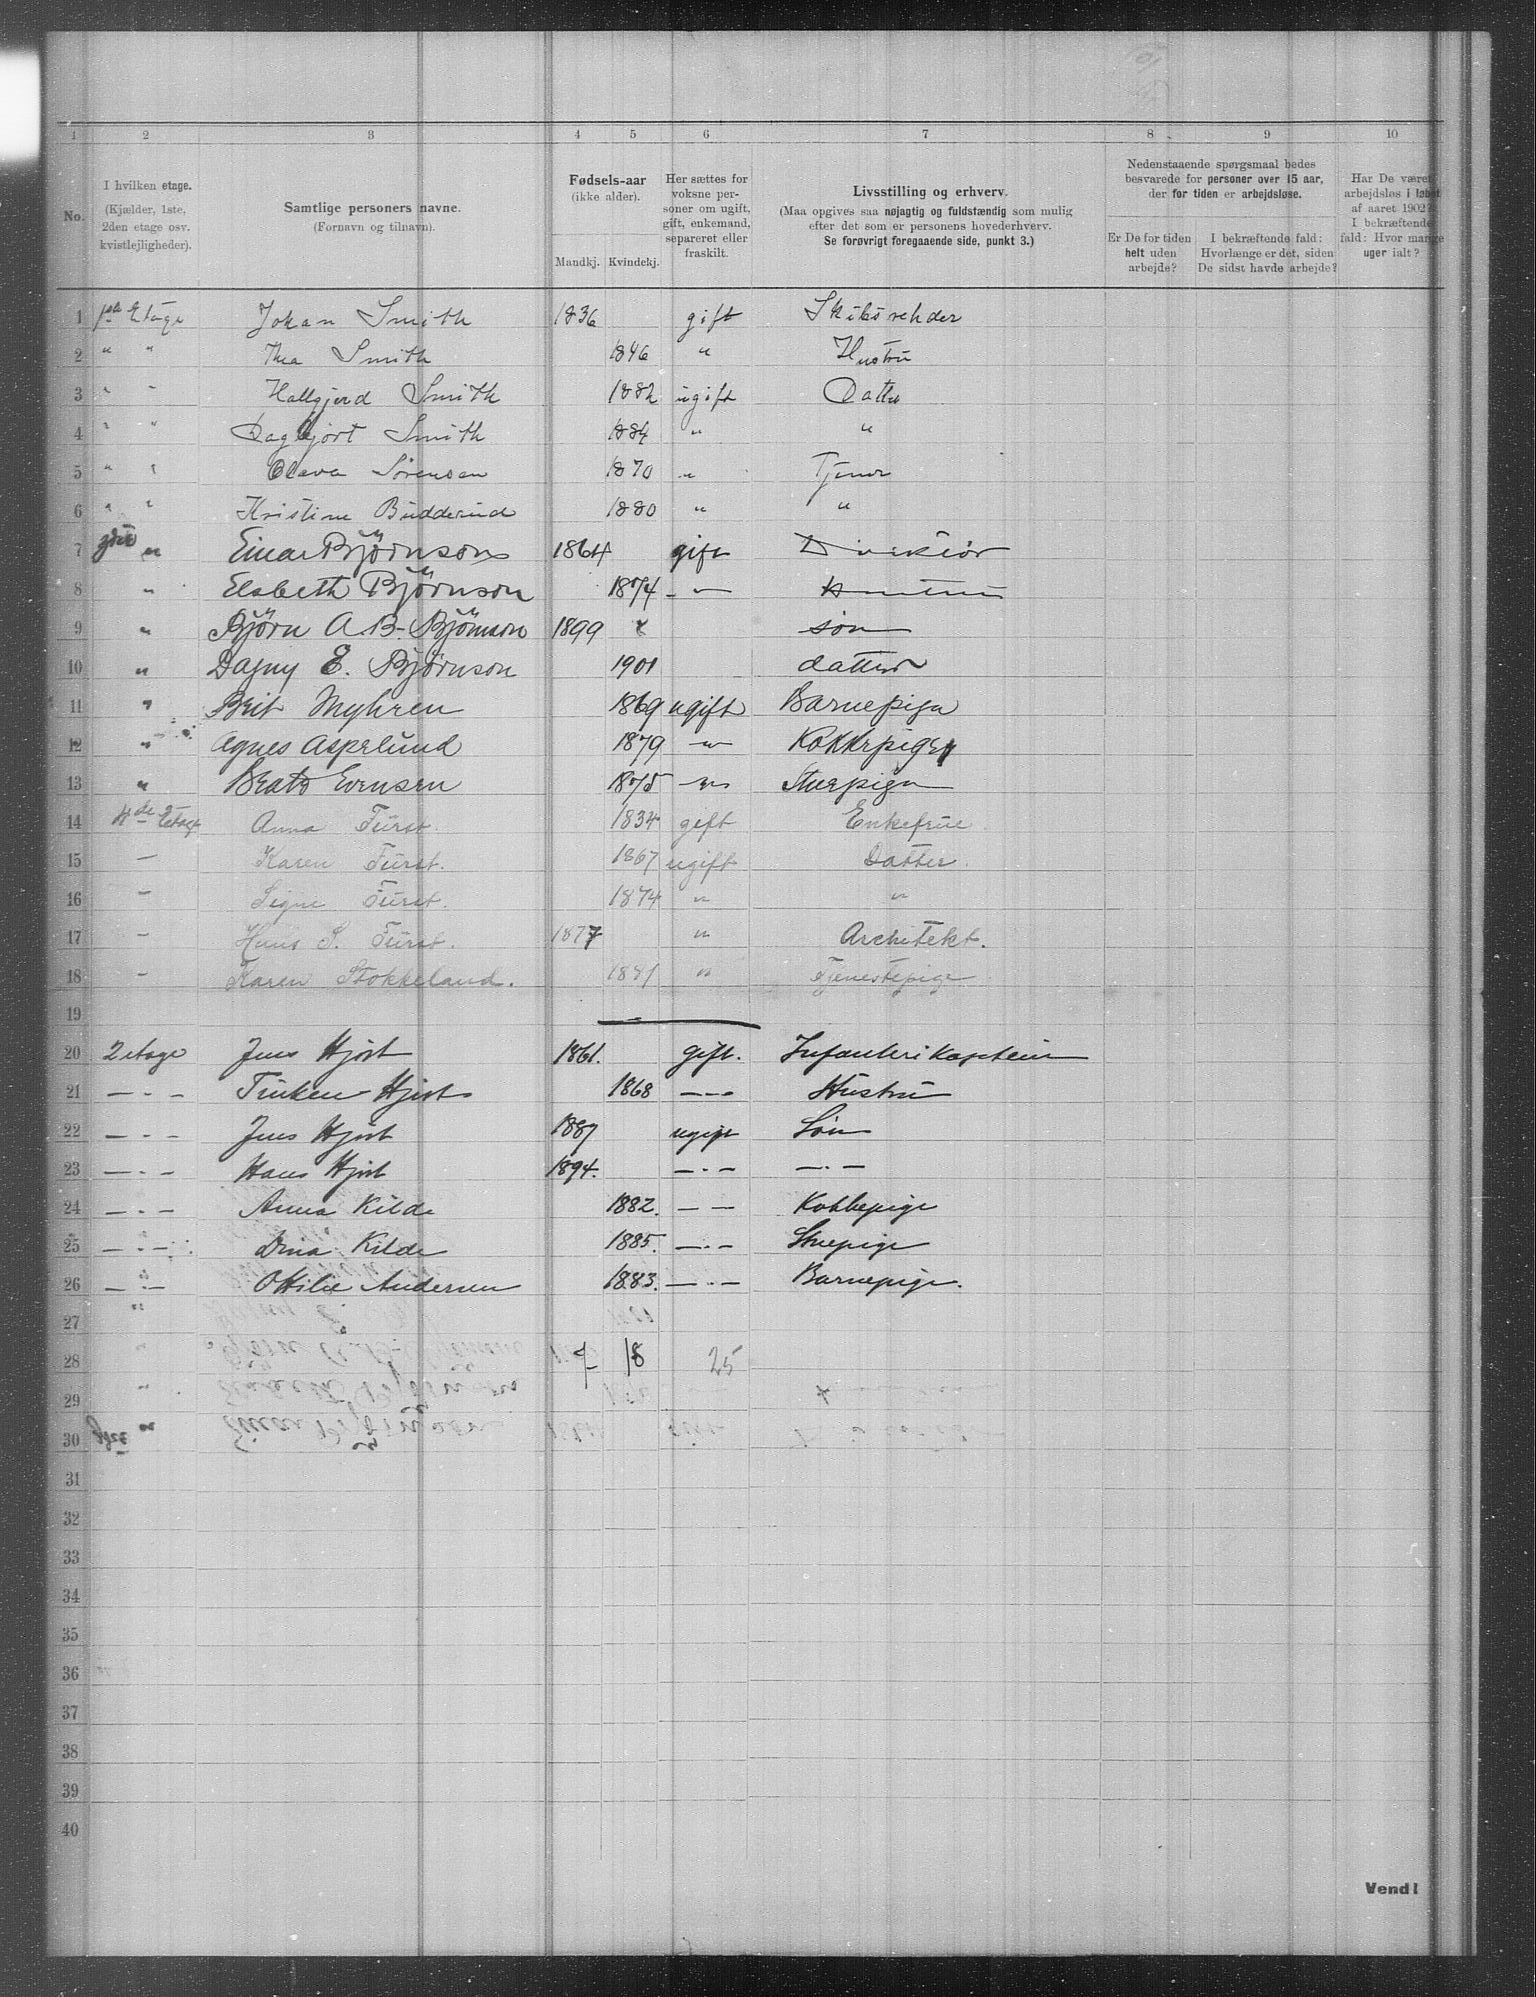 1 2 3 4 5 6 7 8 9 10
No.
I hvilken etage.
(Kjælder, 1ste,
2den etage osv.
kvistlejligheder).
Samtlige personers navne.
(Fornavn og tilnavn).
Fødsels-aar
(ikke alder).
Mandkj. Kvindekj.
Her sættes for
voksne per-
soner om ugift,
gift, enkemand,
separeret eller
fraskilt.
Livsstilling og erhverv.
(Maa opgives saa nøjagtig og fuldstændig som mulig
efter det som er personens hovederhverv.
Se forøvrigt foregaaende side, punkt 3.)
Nedenstaaende spørgsmaal bedes
besvarede for personer over 15 aar,
der for tiden er arbejdsløse.
Er De for tiden
helt uden
arbejde?
I bekræftende fald:
Hvorlænge er det, siden
De sidst havde arbejde?
Har De været
arbejdsløs i løbet
af aaret 1902?
I bekræftende
fald: Hvor mange
uger ialt?
1 1ste Etage Johan Smith 1836 gift Skibsrehder
2 " " Thea Smith 1846 " Hustru
3 " " Hallgjerd Smith 1882 ugift Datter
4 " " Dagbjørt Smith 1884 " "
5 " " Olava Sørensen 1870 " Tjener
6 " " Kristine Budderud 1880 " "
7 3die " Einar Bjørnson 1864 gift Direktør
8 " Elsbeth Bjørnson 1874 " Hustru
9 " Bjørn A. B. Bjørnson 1899 søn
10 " Dagny E. Bjørnson 1901 datter
11 " Brit Myhren 1869 ugift Barnepige
12 " Agnes Aspelund 1879 " Kokkepige
13 " Beate Evensen 1875 " Stuepige
14 4de Etage Anna Fürst. 1834 gift Enkefrue.
15 — Karen Fürst. 1867 ugift Datter.
16 — Signe Fürst. 1874 " "
17 — Hans S. Fürst. 1877 " Architekt.
18 — Karen Stokkeland. 1881 " Tjenestepige
19
20 2 etage Jens Hjort 1861. gift. Infanterikaptein
21 — . — Tinken Hjort 1868 — . — Hustru
22 — . — Jens Hjort 1887 ugift Søn
23 — . — Hans Hjort 1894. — . — — . —
24 — . — Anna Kilde 1882. — — Kokkepige
25 — . — Dina Kilde 1885. — . — Stuepige
26 — . — Ottilie Andersen 1883. — . — Barnepige.
27
28 7 18 25
29
30
31
32
33
34
35
36
37
38
39
40
Vend!